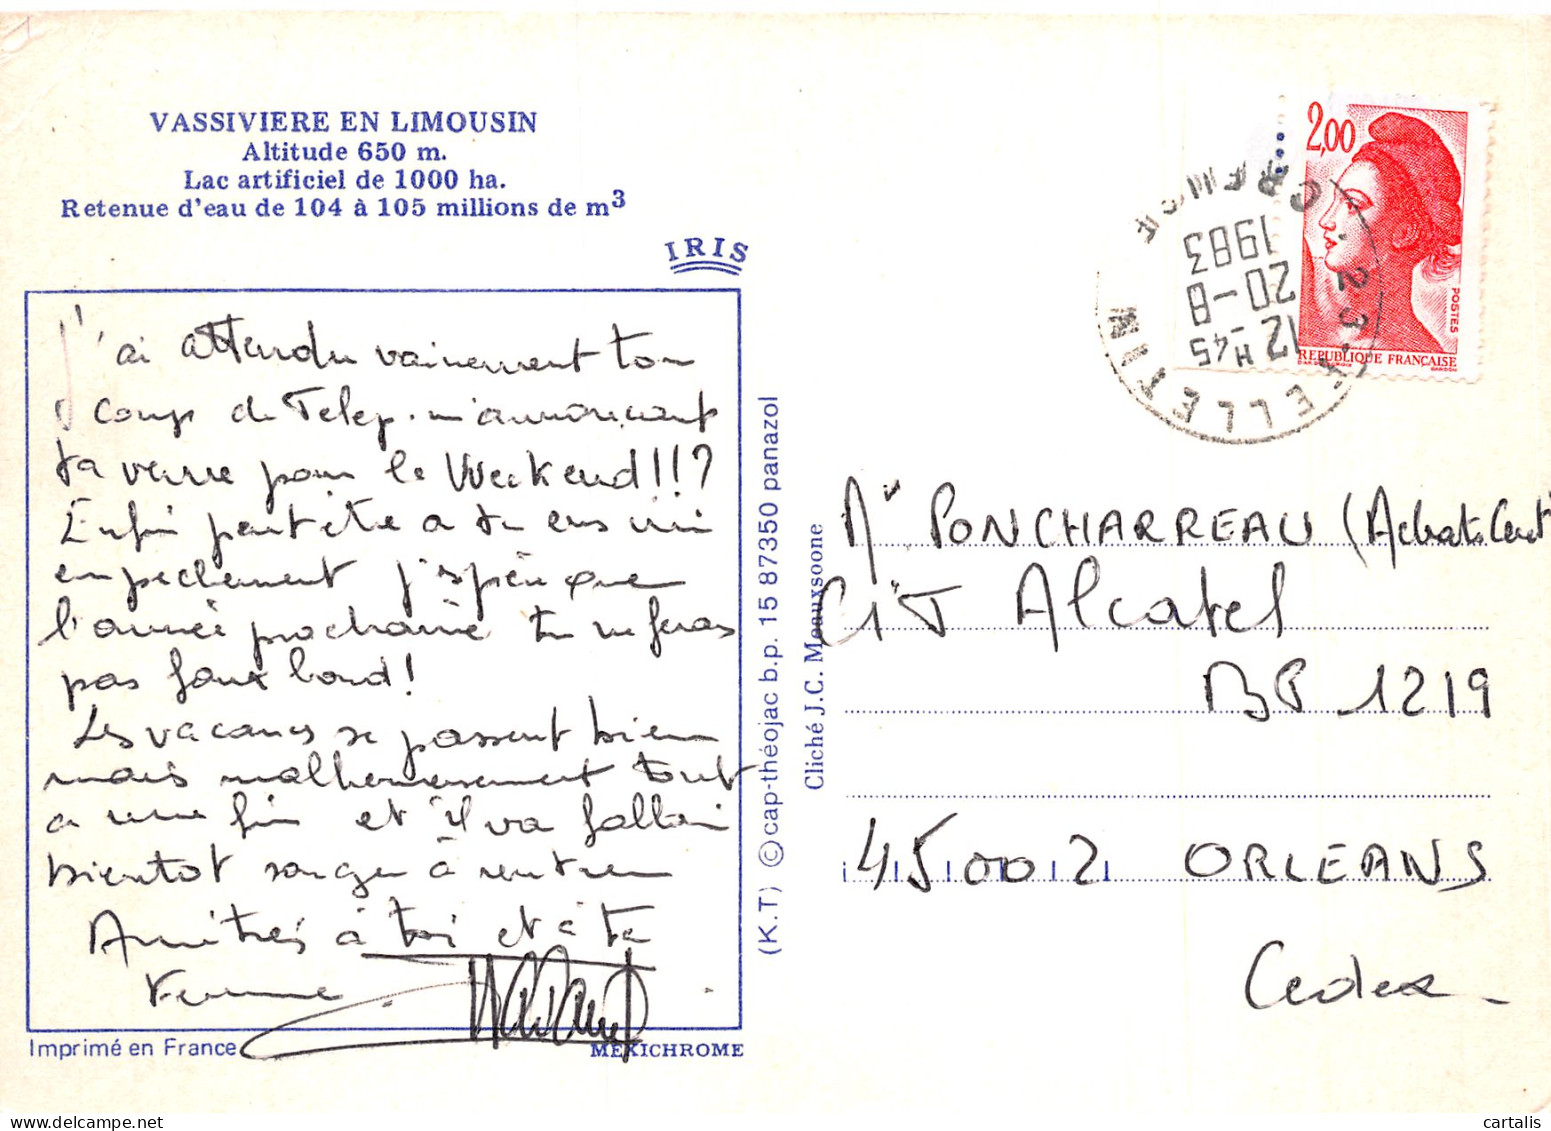 VASSIVIERE EN LIMOUSIN
Altitude 650 m.
Lac artificiel de 1000 ha.
Retenue d'eau de 104 à 105 millions de m3
IRIS
J'ai attendu vainement ton
coup de Telep. m'annoncant
ta venue pour le Weekend!!?
Enfin peut être a tu eus un
empechement j'espère que
l'année prochaine tu ne feras
pas faux bond!
Les vacances se passent bien
mais malheureusement tout
a une fin et il va falloir
bientot songer à rentrer
Amitiés à toi et à ta
Femme.
Imprimé en France
MEXICHROME
(K.T) © cap-théojac b.p. 15 87350 panazol
Cliché J.C. Meauxsoone
2,00
POSTES
REPUBLIQUE FRANÇAISE
GANDON
23 FELLETIN CREUSE
12 H 45
20-8
1983
Mr PONCHARREAU (Achats Cent
CIT Alcatel
BP 1219
45002 ORLEANS
Cedex
cartalis